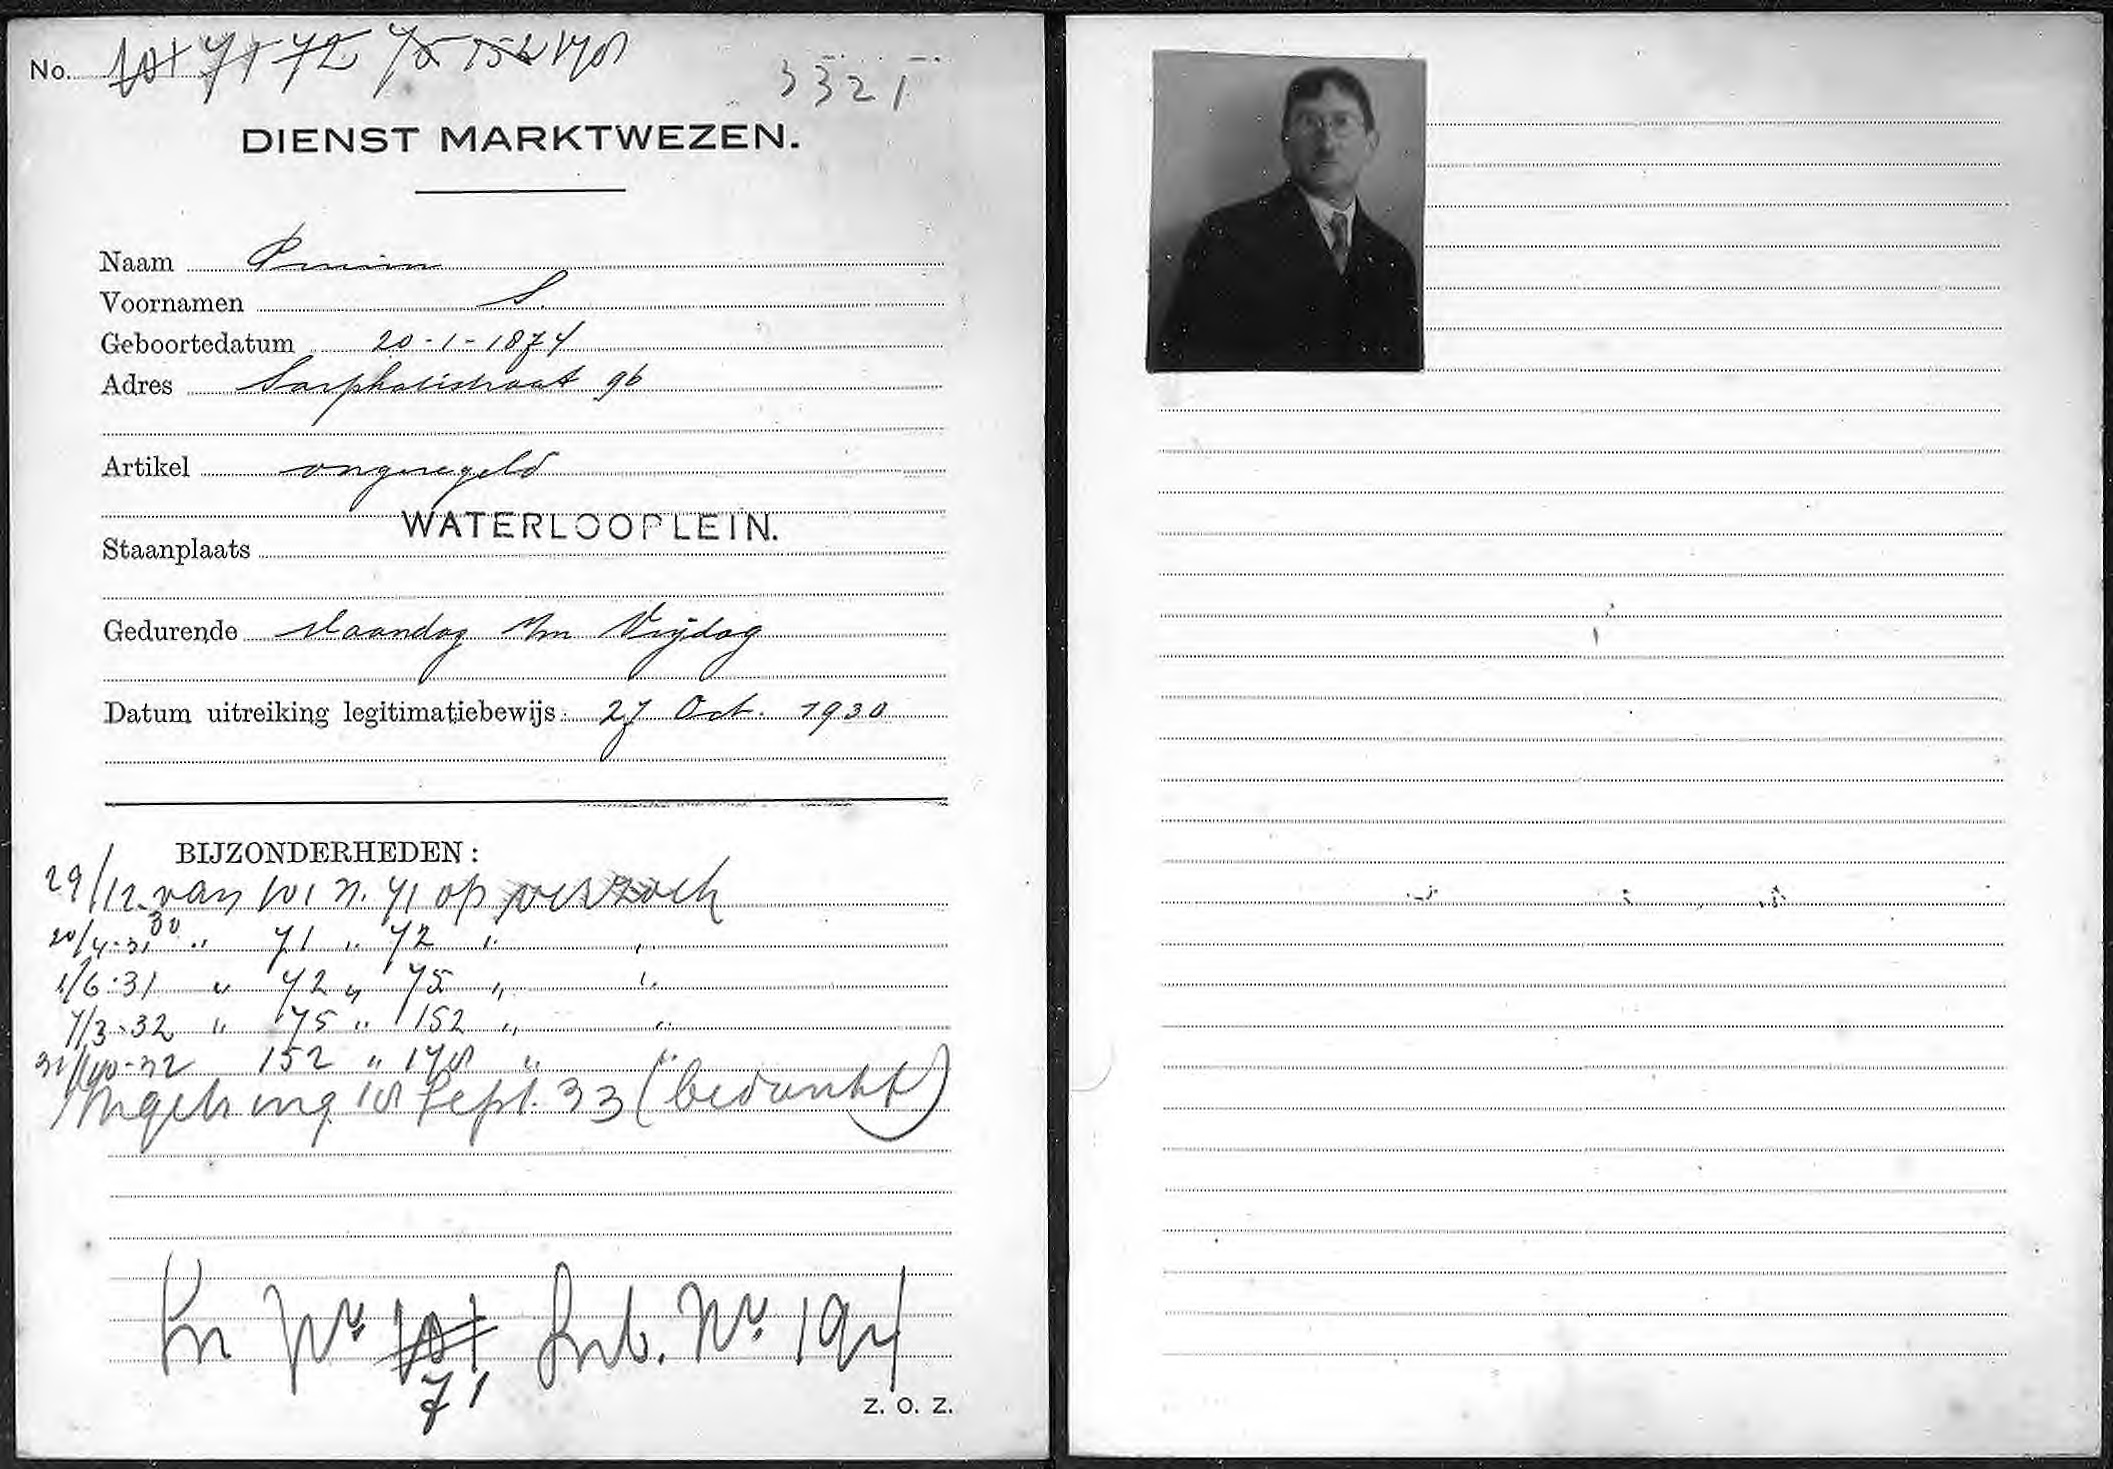 No. 101 71 72 75 152 178
3321
DIENST MARKTWEZEN.
Naam Pruim
Voornamen S.
Geboortedatum 20-1-1874
Adres Sarphatistraat 96
Artikel ongeregeld
WATERLOOPLEIN.
Staanplaats
Gedurende Maandag t/m Vrijdag
Datum uitreiking legitimatiebewijs: 27 Oct. 1930
BIJZONDERHEDEN:
29/12-30 van 101 n. 71 op verzoek
20/4-31 " 71 " 72 " "
1/6-31 " 72 " 75 " "
7/3-32 " 75 " 152 " "
31/10-32 152 " 178 " "
Ingeh ing. 18 Sept. 33 (bedankt)
Kn No. 101 Snb. No. 194
71
Z. O. Z.